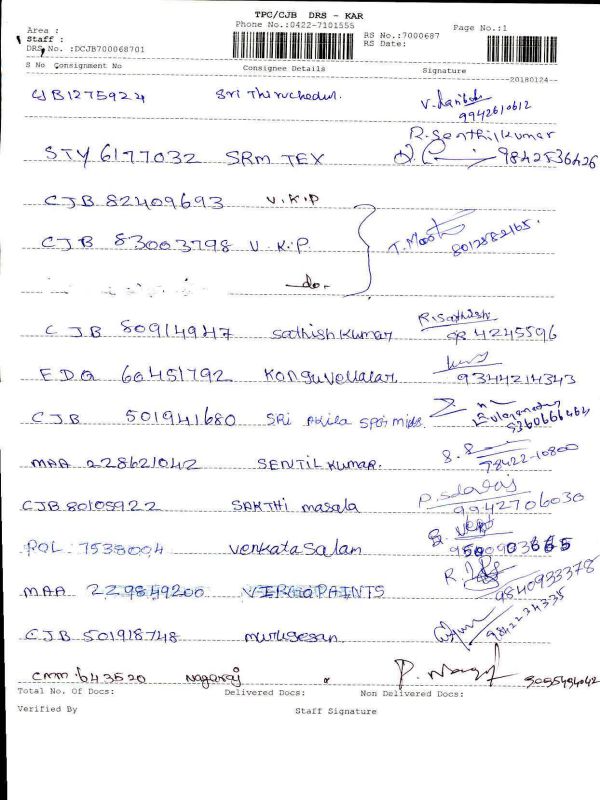 TPC/CJB DRS - KAR
Area : Phone No.:0422-7101555 Page No.:1
Staff : RS No.:7000687
DRS No. :DCJB700068701 RS Date:
S No Consignment No Consignee Details Signature
20180124
CJB1275924 Sri Thiruchedul. 9942610612
R. Senthilkumar
STY 6177032 SRM TEX 9842536426
CJB 82409693 V.K.P
CJB 83003798 V.K.P. 8012882165.
do.
CJB 80914947 Sathishkumar R.Sathish 4245596
E.D.Q 60451792 Konguvellalar 9344214343
CJB 501941680 SRi Akila 9360666464
MAA 228621042 SENTIL KUMAR. 78422-10800
CJB 80105922 SAKTHI masala 9942706030
POL 7538004 Venkatasalam
MAA 229849200 VIRGO PAINTS 9840933378
CJB 501918748 murugesan 9842234335
CMM.643520 Nagaraj P. Nagaraj
Total No. Of Docs: Delivered Docs: Non Delivered Docs:
Verified By Staff Signature